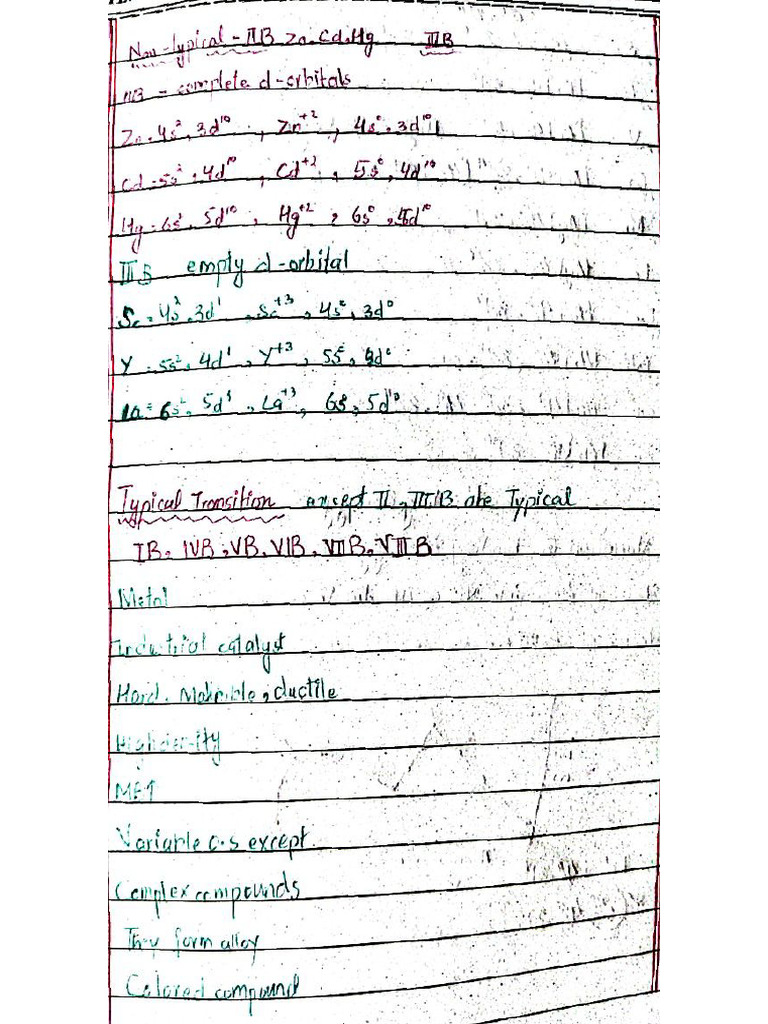 Non-typical - IIB Zn, Cd, Hg IIIB
IIB - complete d-orbitals
Zn = 4s², 3d¹⁰ , Zn⁺² , 4s⁰, 3d¹⁰
Cd = 5s², 4d¹⁰ , Cd⁺² , 5s⁰, 4d¹⁰
Hg = 6s², 5d¹⁰ , Hg⁺² , 6s⁰, 5d¹⁰
IIIB empty d-orbital
Sc = 4s², 3d¹ , Sc⁺³ , 4s⁰, 3d⁰
Y = 5s², 4d¹ , Y⁺³ , 5s⁰, 4d⁰
La = 6s², 5d¹ , La⁺³ , 6s, 5d⁰
Typical Transition except II, III B are Typical
IB, IVB, VB, VIB, VIIB, VIIIB
Metal
Industrial catalyst
Hard, , ductile
High density
Variable o.s except
Complex compounds
They form alloy
Colored compound